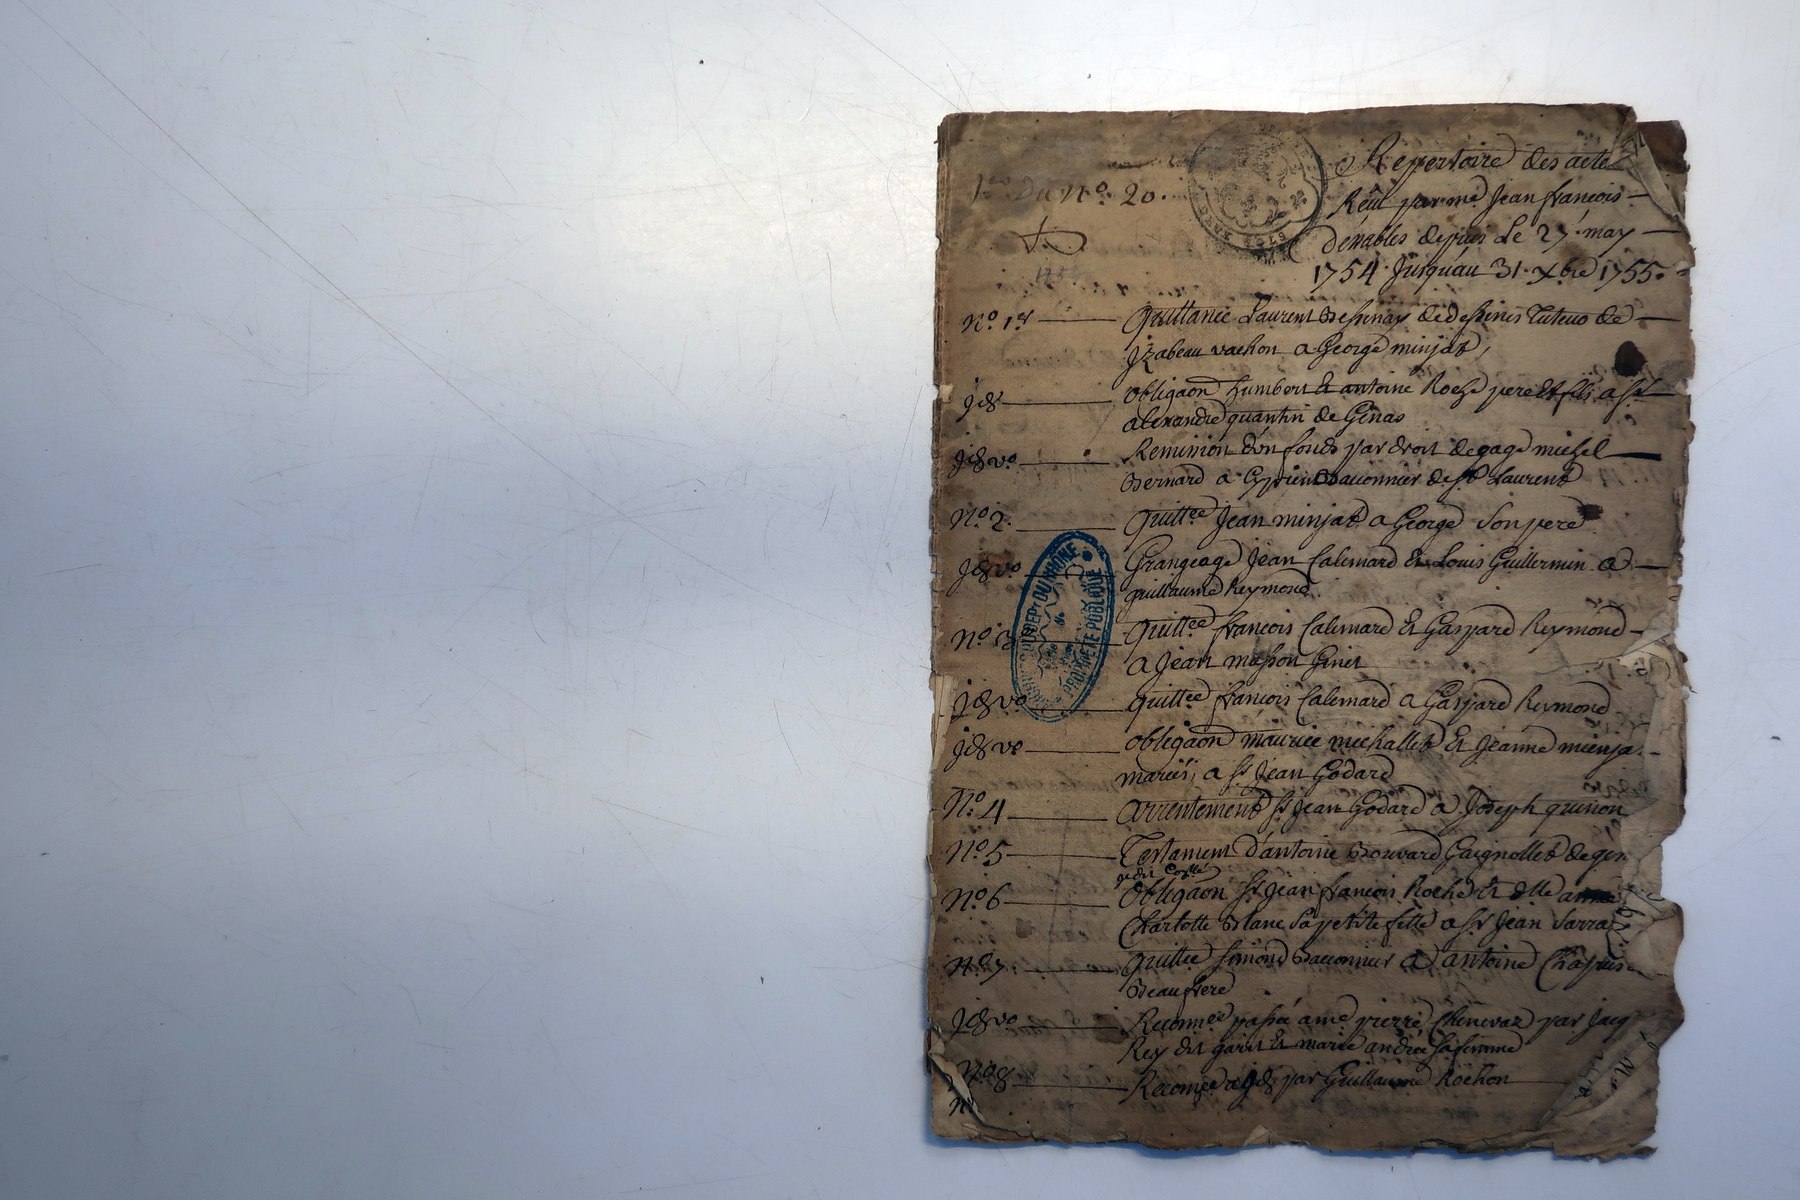 Du N° 20.
Répertoire des acte
Reçu par me Jean françois
dénables depuis Le 27 may
1754 Jusquau 31 xbre 1755.
N° 1er Quittance Laurent Dessinas de dessines Tuteur de
Jzabeau vachon a George minjat
jd Obligaon humbert Et antoine Roche pere Et fils a sr
alexandre quantin de Genas
jd vo Remission d'un fonds par droit de gage michel
Bernard a Cyprien Sauonnier de st Laurent
N° 2. Quittce Jean minjat a George Son pere
jd vo Grangeage Jean Calemard Et Louis Guillermin a
guillaume Reymond
N° 3 Quittce françois Calemard Et Gaspard Reymond
a Jean masson Ginet
jd vo quittce françois Calemard a Gaspard Reymond
jd vo obligaon maurice michallet Et Jeanne mienja
mariés a sr Jean Godard
N° 4 arrentement sr Jean Godard a Joseph quinon
N° 5 Testament d'antoine Bouvard Gaignollet de gen
N° 6 Obligaon sr Jean françois Roche Et dlle
Charlotte Blanc Sa petite fille a sr Jean Sarra
N° 7 quittce Simond Sauonnier a antoine Chapuis
Beaufrere
jd vo Reconnce passée a me pierre Chenevaz par Jacq
Rey dit garit Et marie andrée Sa femme
N° 8 Reconnce a jd par Guillaume Rochon
DEPt DU RHONE
PROPRIÉTÉ PUBLIQUE